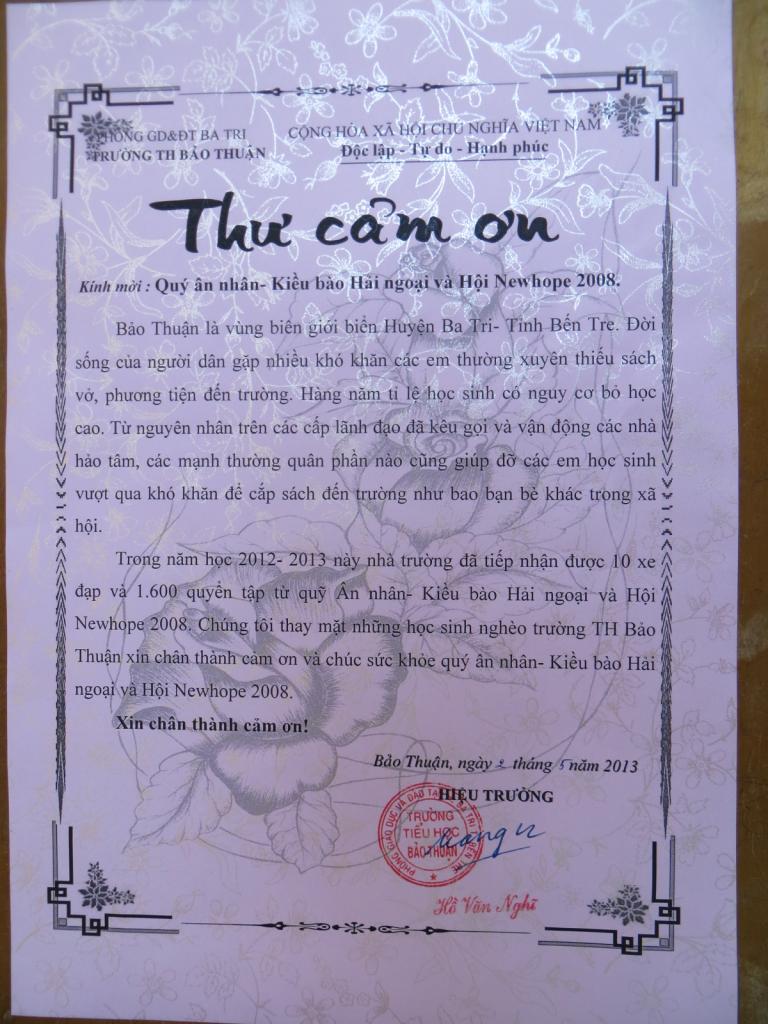 PHÒNG GD&ĐT BA TRI
TRƯỜNG TH BẢO THUẬN
CỘNG HÒA XÃ HỘI CHỦ NGHĨA VIỆT NAM
Độc lập - Tự do - Hạnh phúc
Thư cảm ơn
Kính mời : Quý ân nhân- Kiều bào Hải ngoại và Hội Newhope 2008.
Bảo Thuận là vùng biên giới biển Huyện Ba Tri- Tỉnh Bến Tre. Đời
sống của người dân gặp nhiều khó khăn các em thường xuyên thiếu sách
vở, phương tiện đến trường. Hàng năm tỉ lệ học sinh có nguy cơ bỏ học
cao. Từ nguyên nhân trên các cấp lãnh đạo đã kêu gọi và vận động các nhà
hảo tâm, các mạnh thường quân phần nào cũng giúp đỡ các em học sinh
vượt qua khó khăn để cắp sách đến trường như bao bạn bè khác trong xã
hội.
Trong năm học 2012- 2013 này nhà trường đã tiếp nhận được 10 xe
đạp và 1.600 quyển tập từ quỹ Ân nhân- Kiều bào Hải ngoại và Hội
Newhope 2008. Chúng tôi thay mặt những học sinh nghèo trường TH Bảo
Thuận xin chân thành cảm ơn và chúc sức khỏe quý ân nhân- Kiều bào Hải
ngoại và Hội Newhope 2008.
Xin chân thành cảm ơn!
Bảo Thuận, ngày tháng 5 năm 2013
HIỆU TRƯỞNG
PHÒNG GIÁO DỤC VÀ ĐÀO TẠO BA TRI BẾN TRE
TRƯỜNG
TIỂU HỌC
BẢO THUẬN
Hồ Văn Nghĩ